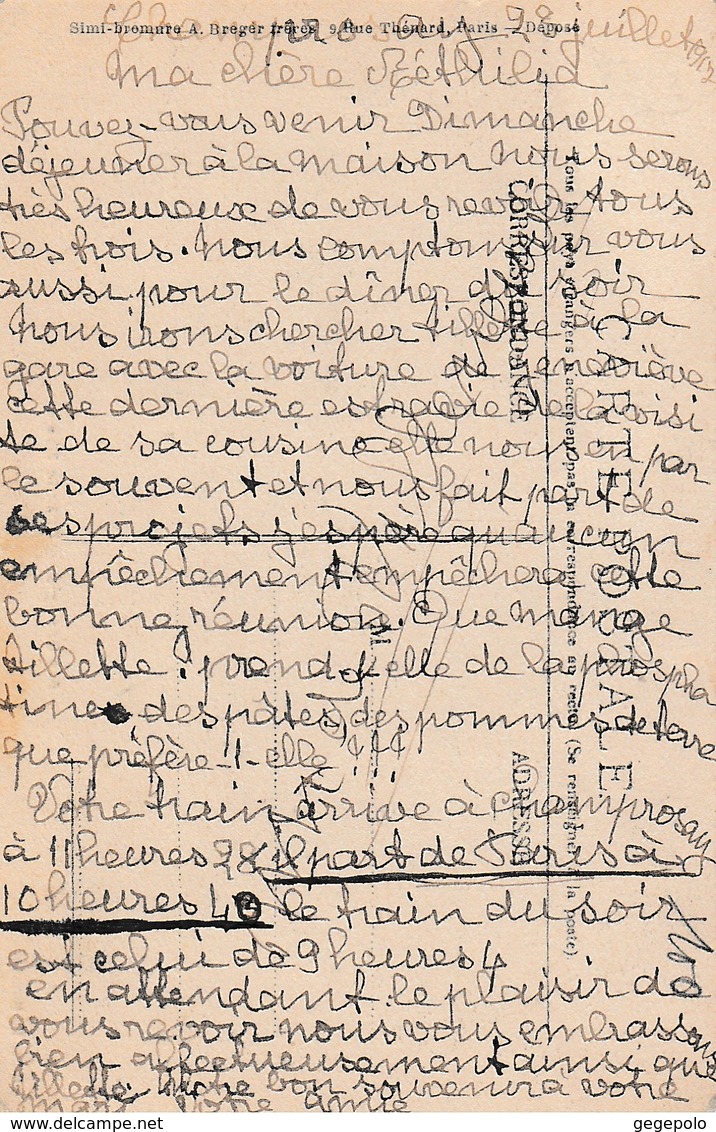 Simi-bromure A. Breger frères 9, Rue Thénard, Paris — Déposé
Champrosay 28 juillet 1912
Ma chère
Pouvez-vous venir Dimanche
déjeuner à la maison nous serons
très heureux de vous revoir tous
les trois. Nous comptons sur vous
aussi pour le dîner du soir
Nous irons chercher tillette à la
gare avec la voiture de Geneviève
cette dernière est ravie de la visi
te de sa cousine elle nous en par
le souvent et nous fait part de
ses projets j'espère qu'aucun
empêchrement empêchera cette
bonne réunion. Que mange
tillette. prend-elle de la phospha
tine des pâtes, des pommes de terre
que préfère-t-elle ???
Votre train arrive à Champrosay
à 11 heures 28 il part de Paris à
10 heures 40 le train du soir
est celui de 9 heures 4
en attendant le plaisir de
vous revoir nous vous embrassons
bien affectueusement ainsi que
tillette. Notre bon souvenir à votre
mari Votre amie
CORRESPONDANCE
Tous les pays étrangers n'acceptent pas la correspondance au recto. (Se renseigner à la poste).
CARTE POSTALE
ADRESSE
M
gegepolo